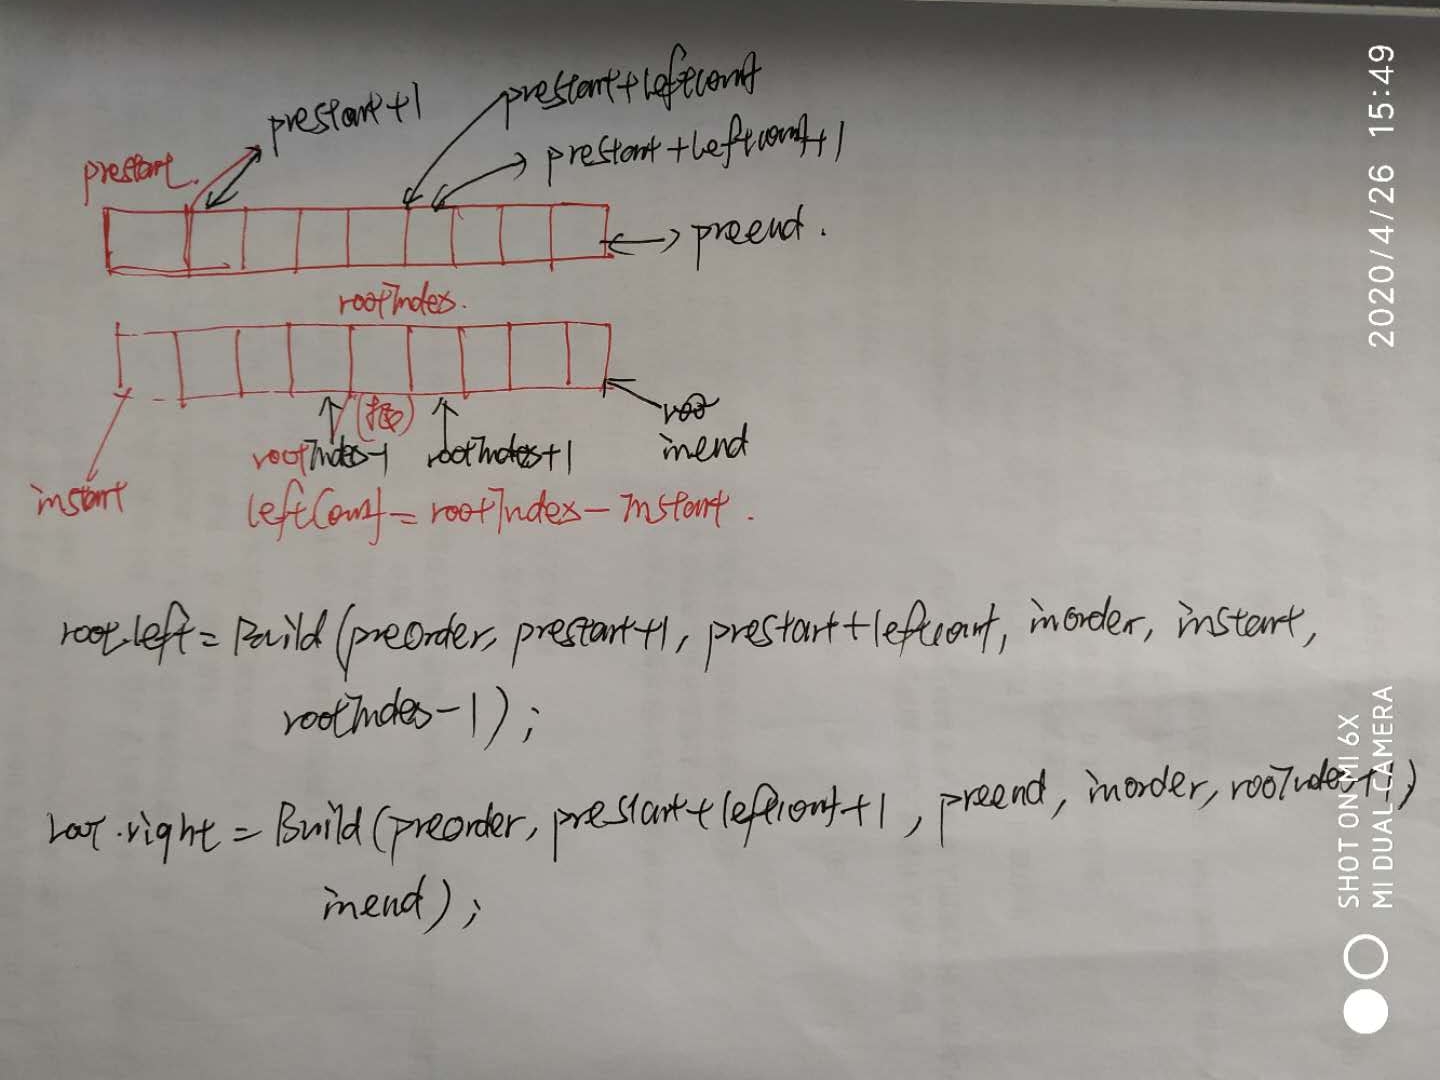 prestart+leftcount
prestart+1
prestart+leftcount+1
prestart.
preend.
rootIndex.
(根)
root
inend
rootIndex-1
rootIndex+1
instart
leftCount=rootIndex-Instart.
root.left=Build(preorder, prestart+1, prestart+leftcount, inorder, instart,
rootIndex-1);
root.right=Build(preorder, prestart+leftcount+1, preend, inorder, rootIndex+1,
inend);
2020/4/26 15:49
SHOT ON MI 6X
MI DUAL CAMERA